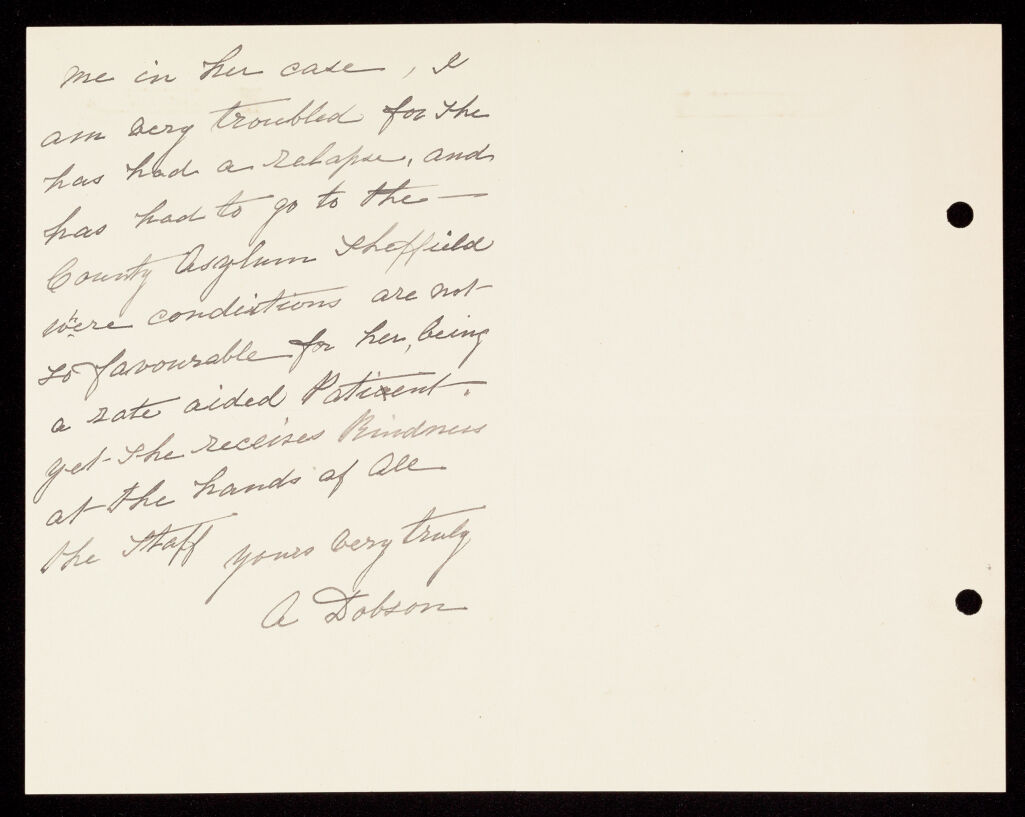 me in her case, I
am very troubled for she
has had a relapse, and
has had to go to the —
County Asylum Sheffield
where condistions are not
so favourable for her, being
a rate aided Patient.
yet she receives Kindness
at the hands of all
the Staff yours very truly
A Dobson